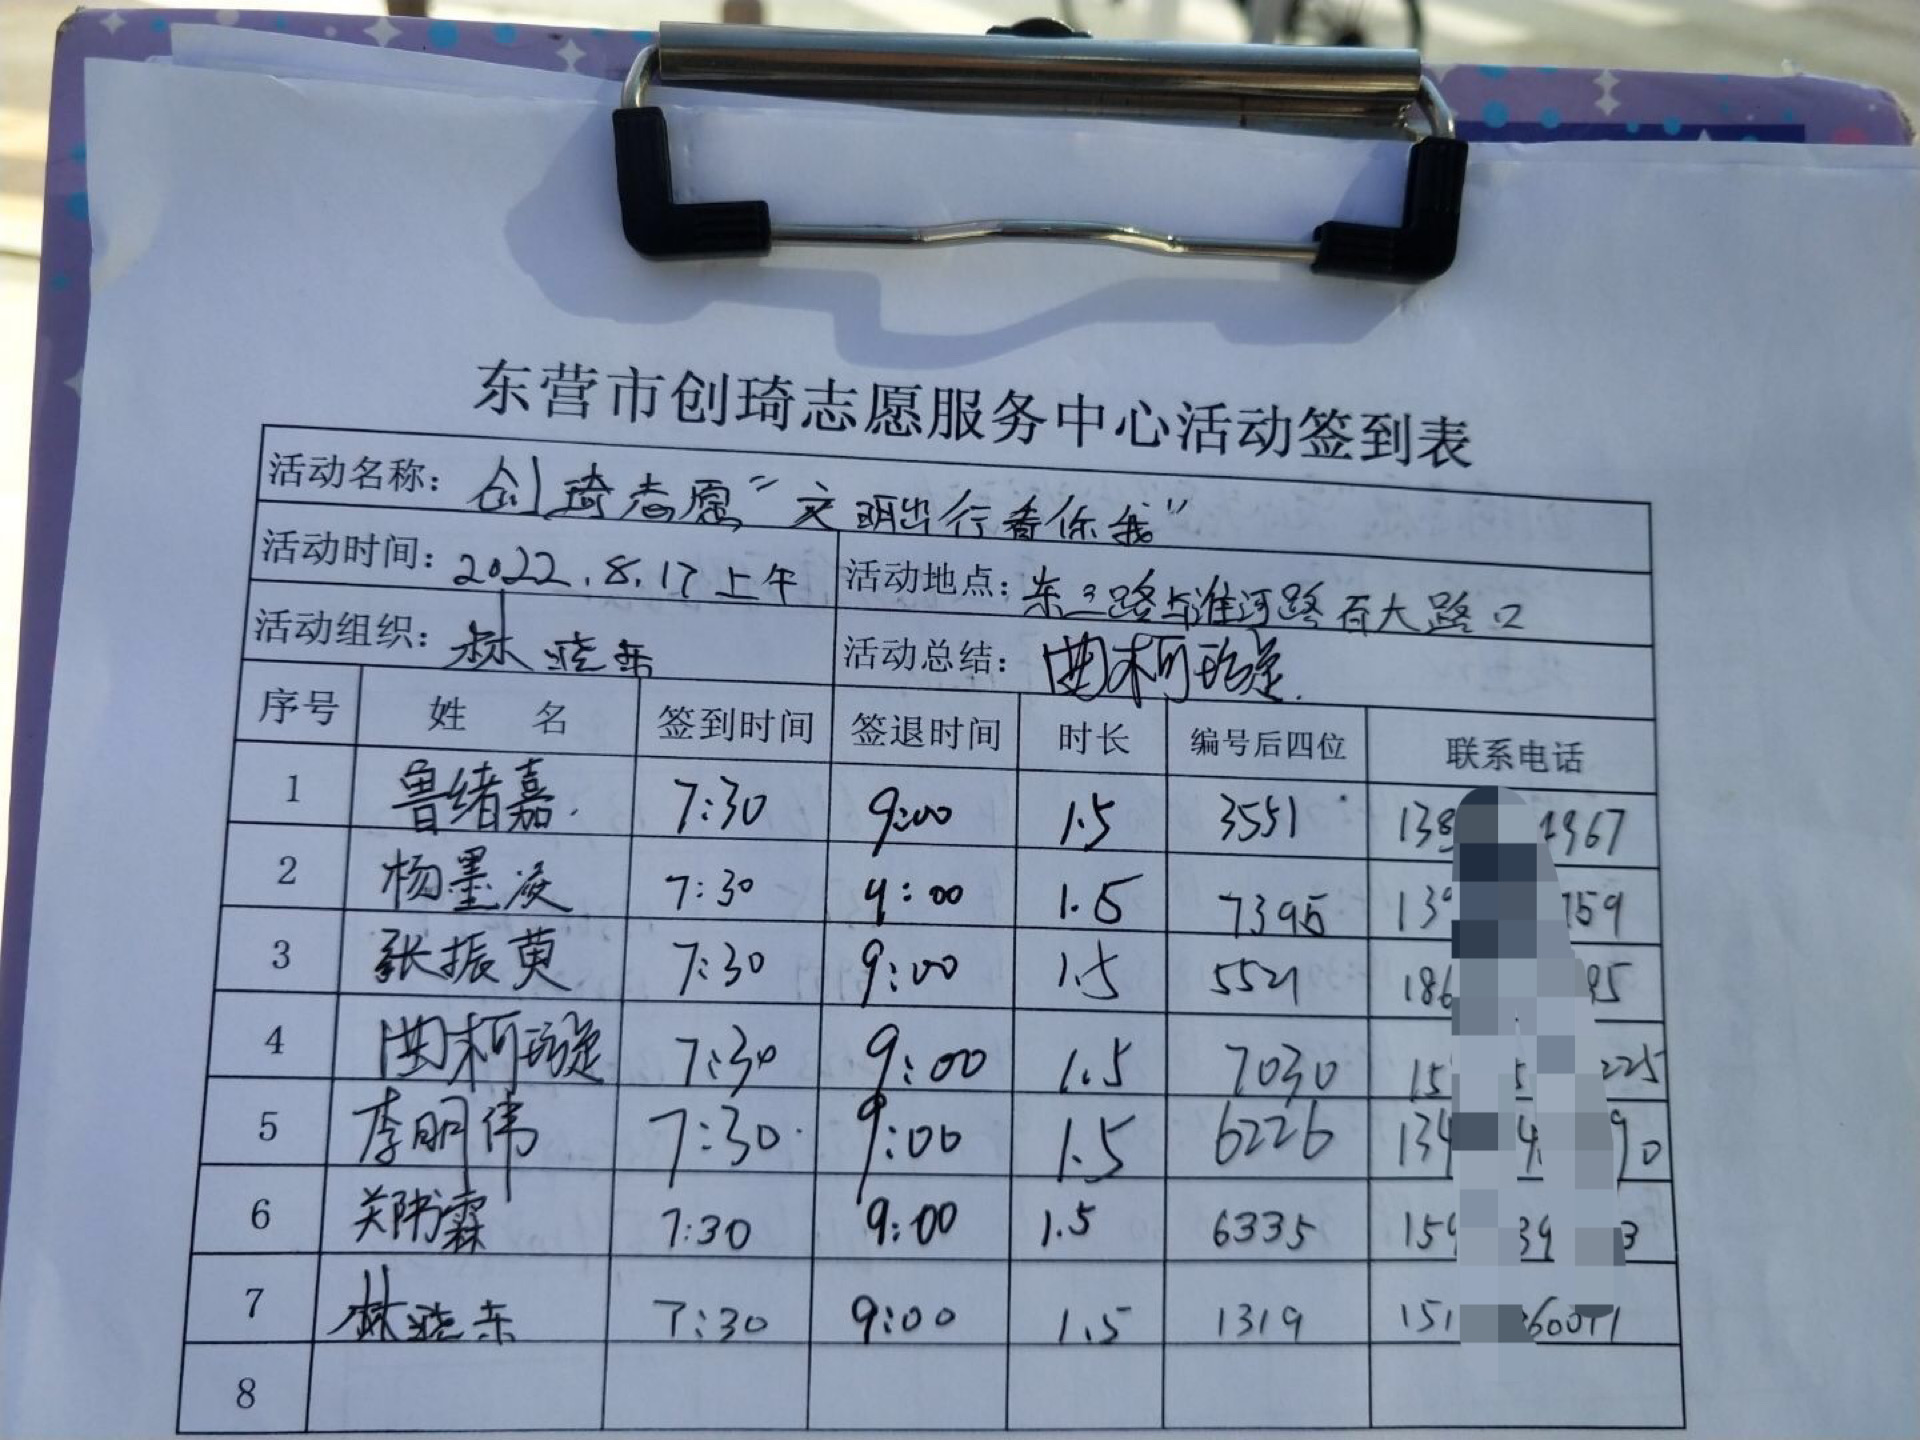 东营市创琦志愿服务中心活动签到表
活动名称：创琦志愿"文明出行看你我"
活动时间：2022.8.17上午 活动地点：东三路与淮河路百大路口
活动组织：林晓东 活动总结：曲柯璇
序号 姓 名 签到时间 签退时间 时长 编号后四位 联系电话
1 鲁绪嘉 7:30 9:00 1.5 3551 138 967
2 杨墨凌 7:30 9:00 1.5 7395 139 759
3 张振 7:30 9:00 1.5 5521 186 95
4 曲柯璇 7:30 9:00 1.5 7030 15 5 225
5 李明伟 7:30 9:00 1.5 6226 134 4 90
6 关书霖 7:30 9:00 1.5 6335 159 39 3
7 林晓东 7:30 9:00 1.5 1319 151 6
8